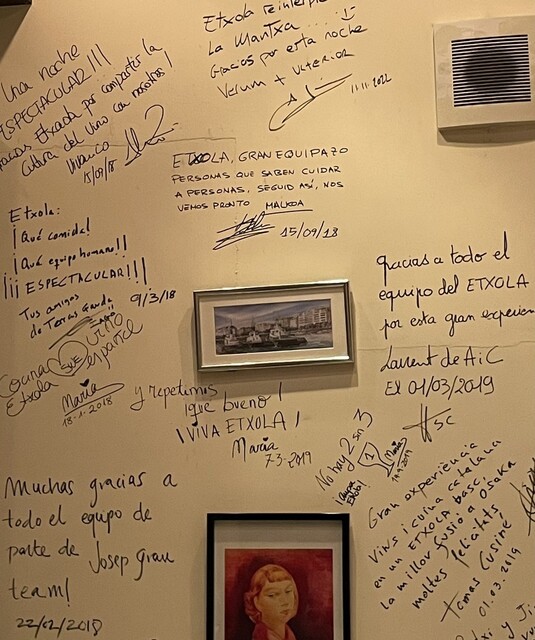 Una noche
ESPECTACULAR!!!
Gracias Etxola por compartir la
cultura del vino con nosotros!
Vivanco
15/09/18
Etxola reinterpre
La Mantxa...
Gracias por esta noche
Verum + Ulterior
11.11.2022
ETXOLA, GRAN EQUIPAZO
PERSONAS QUE SABEN CUIDAR
A PERSONAS, SEGUID ASÍ, NOS
VEMOS PRONTO MALKOA
15/09/18
Etxola:
¡Qué comida!
¡Qué equipo humano!!
¡¡¡ESPECTACULAR!!!
Tus amigos
de Terras Gauda
9/3/18
gracias a todo el
equipo del ETXOLA
por esta gran experien
Laurent de A i C
El 01/03/2019
Cocina SUE vino
Etxola español
María
18-1-2018
y repetimos
¡qué bueno!
¡VIVA ETXOLA!
María
7-3-2019
No hay 2 sin 3
¡Aupa
Etxola!
María
Muchas gracias a
todo el equipo de
parte de Josep grau
team!
22/02/2018
Gran experiencia
Vins i cuina catalana
en un ETXOLA basc,
la millor fusió a Osaka
moltes felicitats
Tomas Cusiné
01.03.2019